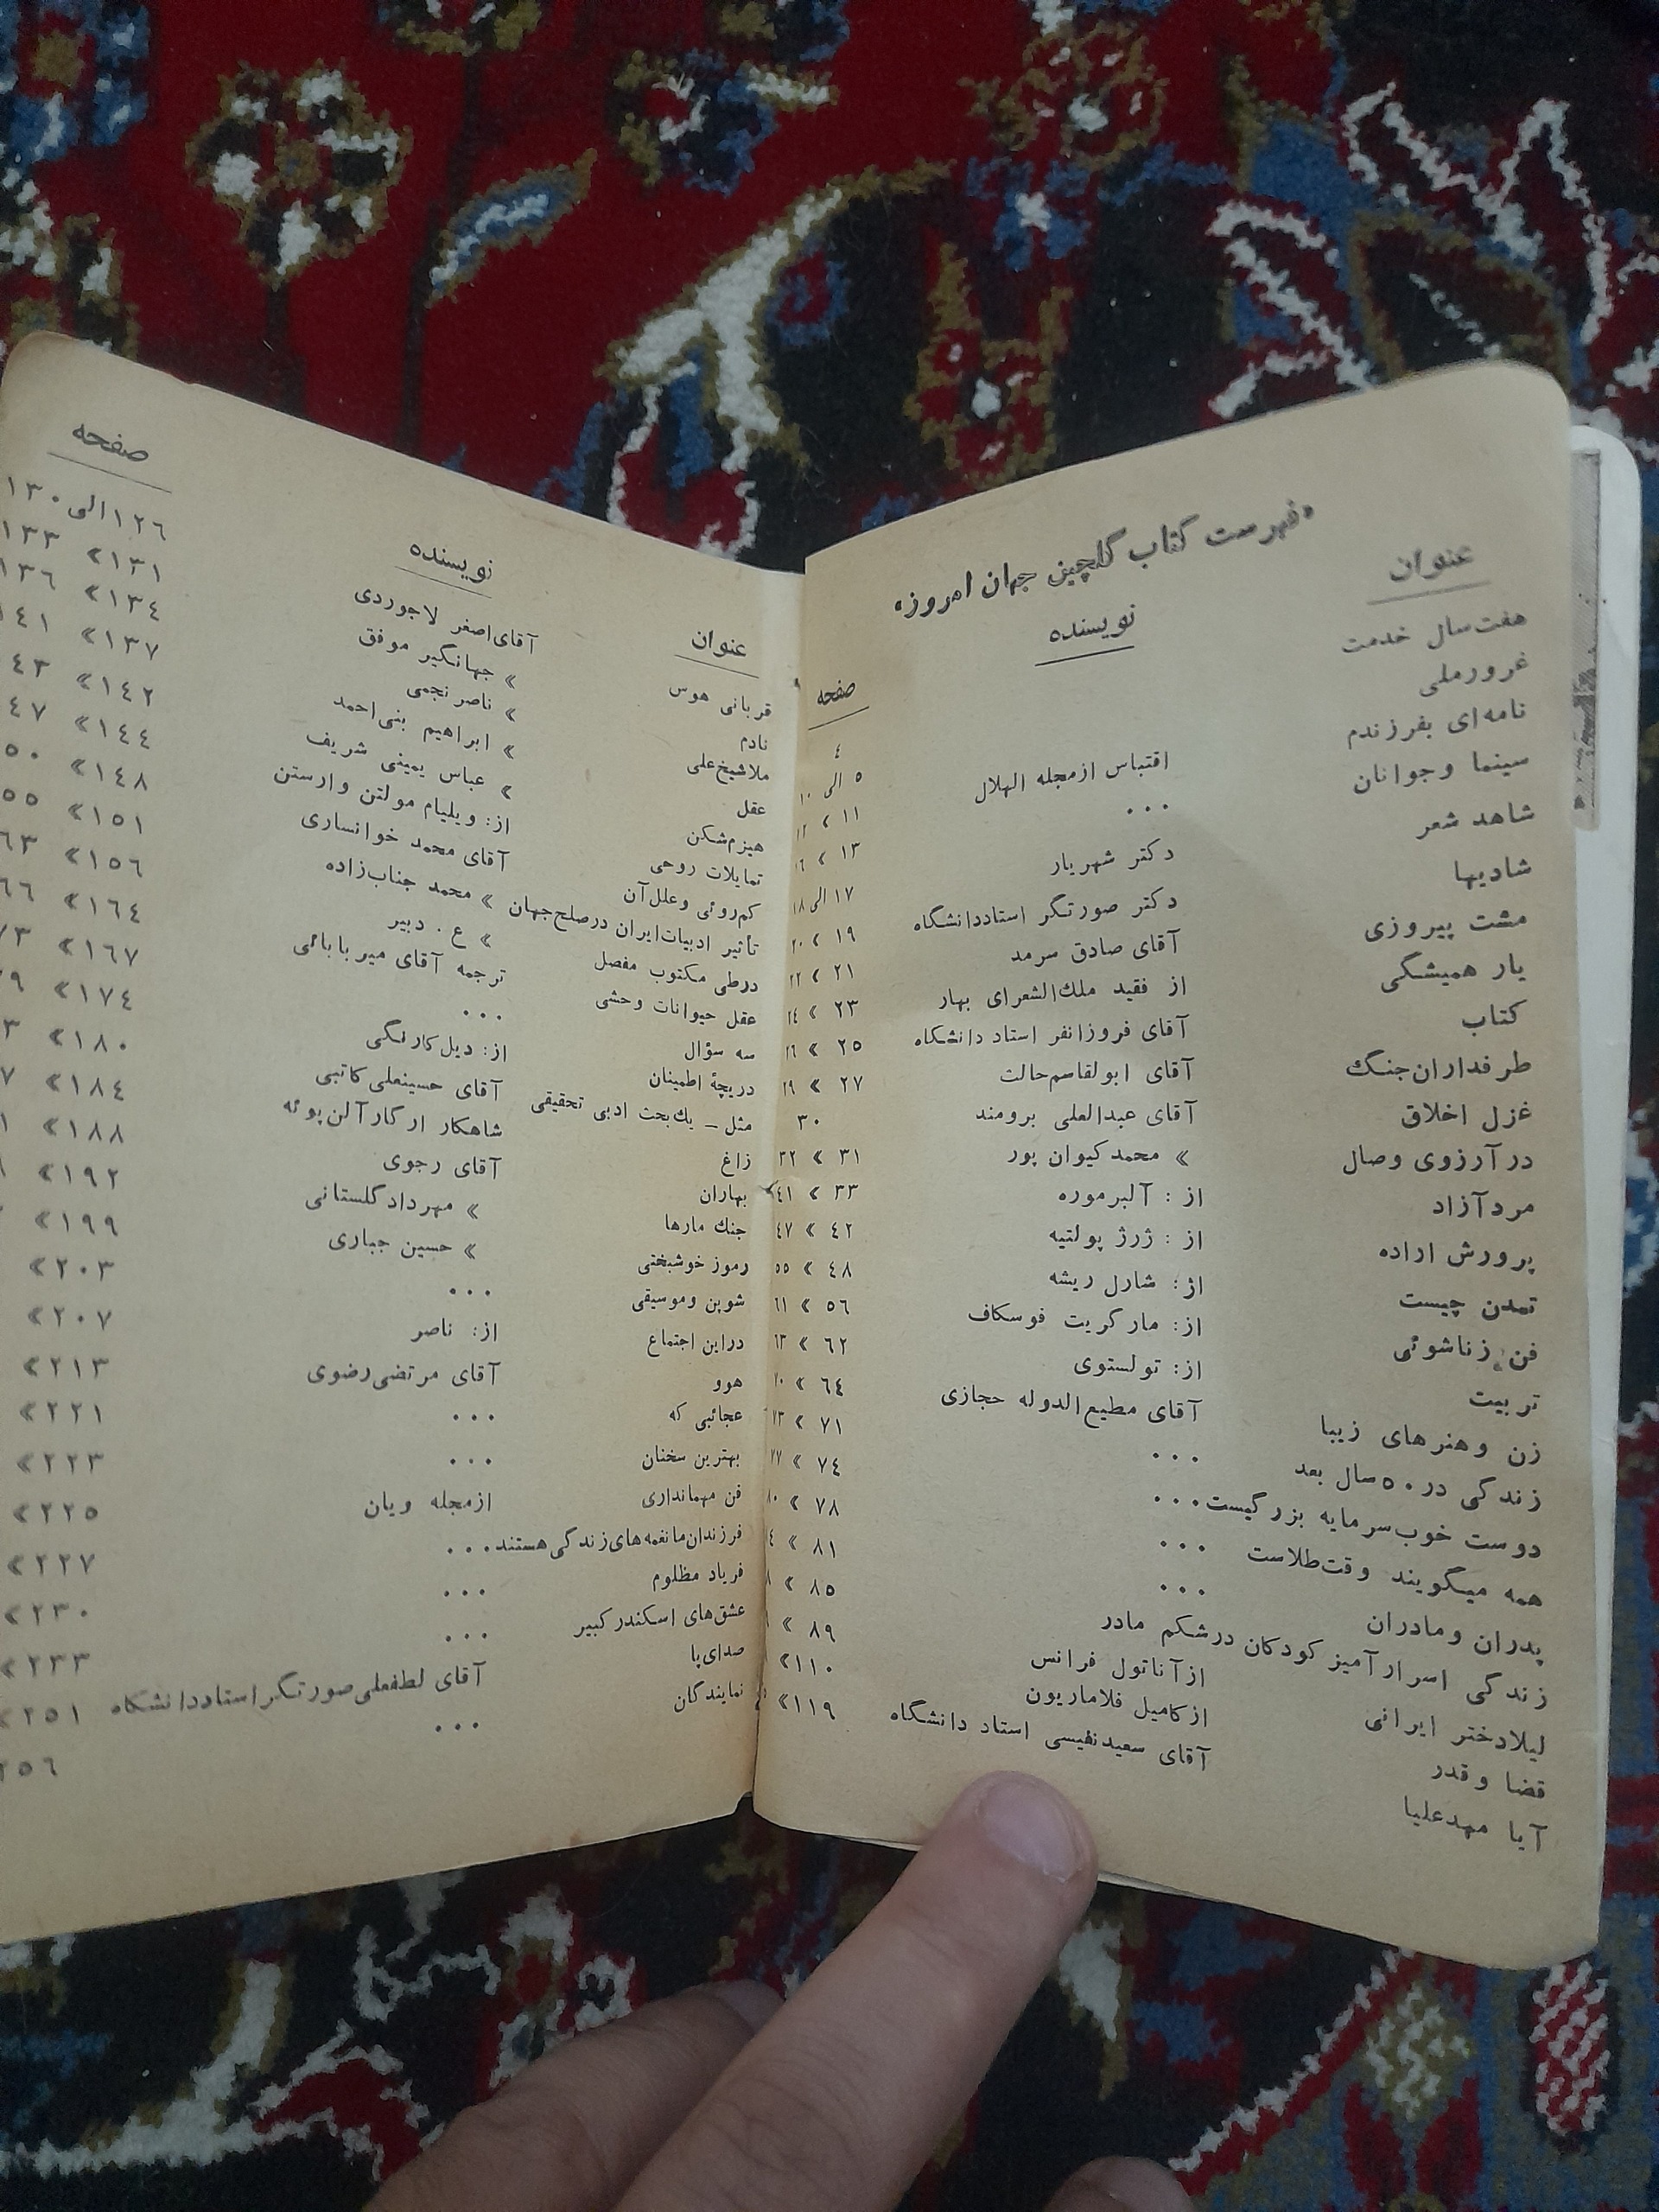 «فهرست کتاب گلچین جهان امروز»
عنوان نویسنده صفحه
هفت‌سال خدمت ٤
غرورملی ٥ الی ١٠
نامه‌ای بفرزندم اقتباس ازمجله الهلال ١١ » ١٢
سینما وجوانان ... ١٣ » ١٦
شاهد شعر دکتر شهریار ١٧ الی ١٨
شادیها دکتر صورتگر استاددانشگاه ١٩ » ٢٠
مشت پیروزی آقای صادق سرمد ٢١ » ٢٢
یار همیشگی از فقید ملك‌الشعرای بهار ٢٣ » ٢٤
کتاب آقای فروزانفر استاد دانشگاه ٢٥ » ٢٦
طرفداران‌جنگ آقای ابولقاسم‌حالت ٢٧ » ٢٩
غزل اخلاق آقای عبدالعلی برومند ٣٠
در آرزوی وصال » محمدکیوان پور ٣١ » ٣٢
مردآزاد از : آلبرموره ٣٣ » ٤١
پرورش اراده از : ژرژ پولتیه ٤٢ » ٤٧
تمدن چیست از: شارل ریشه ٤٨ » ٥٥
فن زناشوئی از: مارگریت فوسکاف ٥٦ » ٦١
تربیت از: تولستوی ٦٢ » ٦٣
زن وهنرهای زیبا آقای مطیع‌الدوله حجازی ٦٤ »
زندگی در ٥٠ سال بعد ... ٧١ » ٧٣
دوست خوب‌سرمایه بزرگیست ... ٧٤ » ٧٧
همه میگویند وقت‌طلاست ... ٧٨ » ٨٠
پدران ومادران ... ٨١ »
زندگی اسرارآمیز کودکان درشکم مادر ٨٥ »
لیلادختر ایرانی ازآناتول فرانس ٨٩ »
قضا و قدر ازکامیل فلاماریون ١١٠ »
آیا مهدعلیا آقای سعیدنفیسی استاد دانشگاه ١١٩ »
عنوان نویسنده صفحه
قربانی هوس آقای‌اصغر لاجوردی ١٢٦ الی ١٣٠
نادم » جهانگیر موفق ١٣١ » ١٣٣
ملاشیخ‌علی » ناصرنجمی ١٣٤ » ١٣٦
عقل » ابراهیم بنی‌احمد ١٣٧ »
هیزم‌شکن » عباس یمینی شریف ١٤٢ »
تمایلات روحی از: ویلیام مولتن وارستن ١٤٤ »
کم‌روئی وعلل‌آن آقای محمد خوانساری ١٤٨ »
تأثیر ادبیات‌ایران درصلح‌جهان » محمد جناب‌زاده ١٥١ »
درطی مکتوب مفصل » ع . دبیر ١٥٦ »
عقل حیوانات وحشی ترجمه آقای میربابائی ١٦٤ »
سه سؤال ... ١٦٧ »
دریچهٔ اطمینان از: دیل‌کارنگی ١٧٤ »
مثل ــ یك‌بحث ادبی تحقیقی آقای حسینعلی کاتبی ١٨٠ »
زاغ شاهکار ادگارآلن‌پوئه ١٨٤ »
بهاران آقای رجوی ١٨٨ »
جنك مارها » مهردادگلستانی ١٩٢ »
رموز خوشبختی » حسین جباری ١٩٩ »
شوپن وموسیقی ... ٢٠٣ »
دراین اجتماع از: ناصر ٢٠٧ »
هوو آقای مرتضی‌رضوی ٢١٣ »
عجائبی که ... ٢٢١ »
بهترین سخنان ... ٢٢٣ »
فن مهمانداری ازمجله ویان ٢٢٥ »
فرزندان‌مانغمه‌های‌زندگی‌هستند ... ٢٢٧ »
فریاد مظلوم ... ٢٣٠ »
عشق‌های اسکندرکبیر ... ٢٣٣ »
صدای‌پا آقای لطفعلی‌صورتگراستاددانشگاه ٢٥١ »
نمایندگان ... ٢٥٦